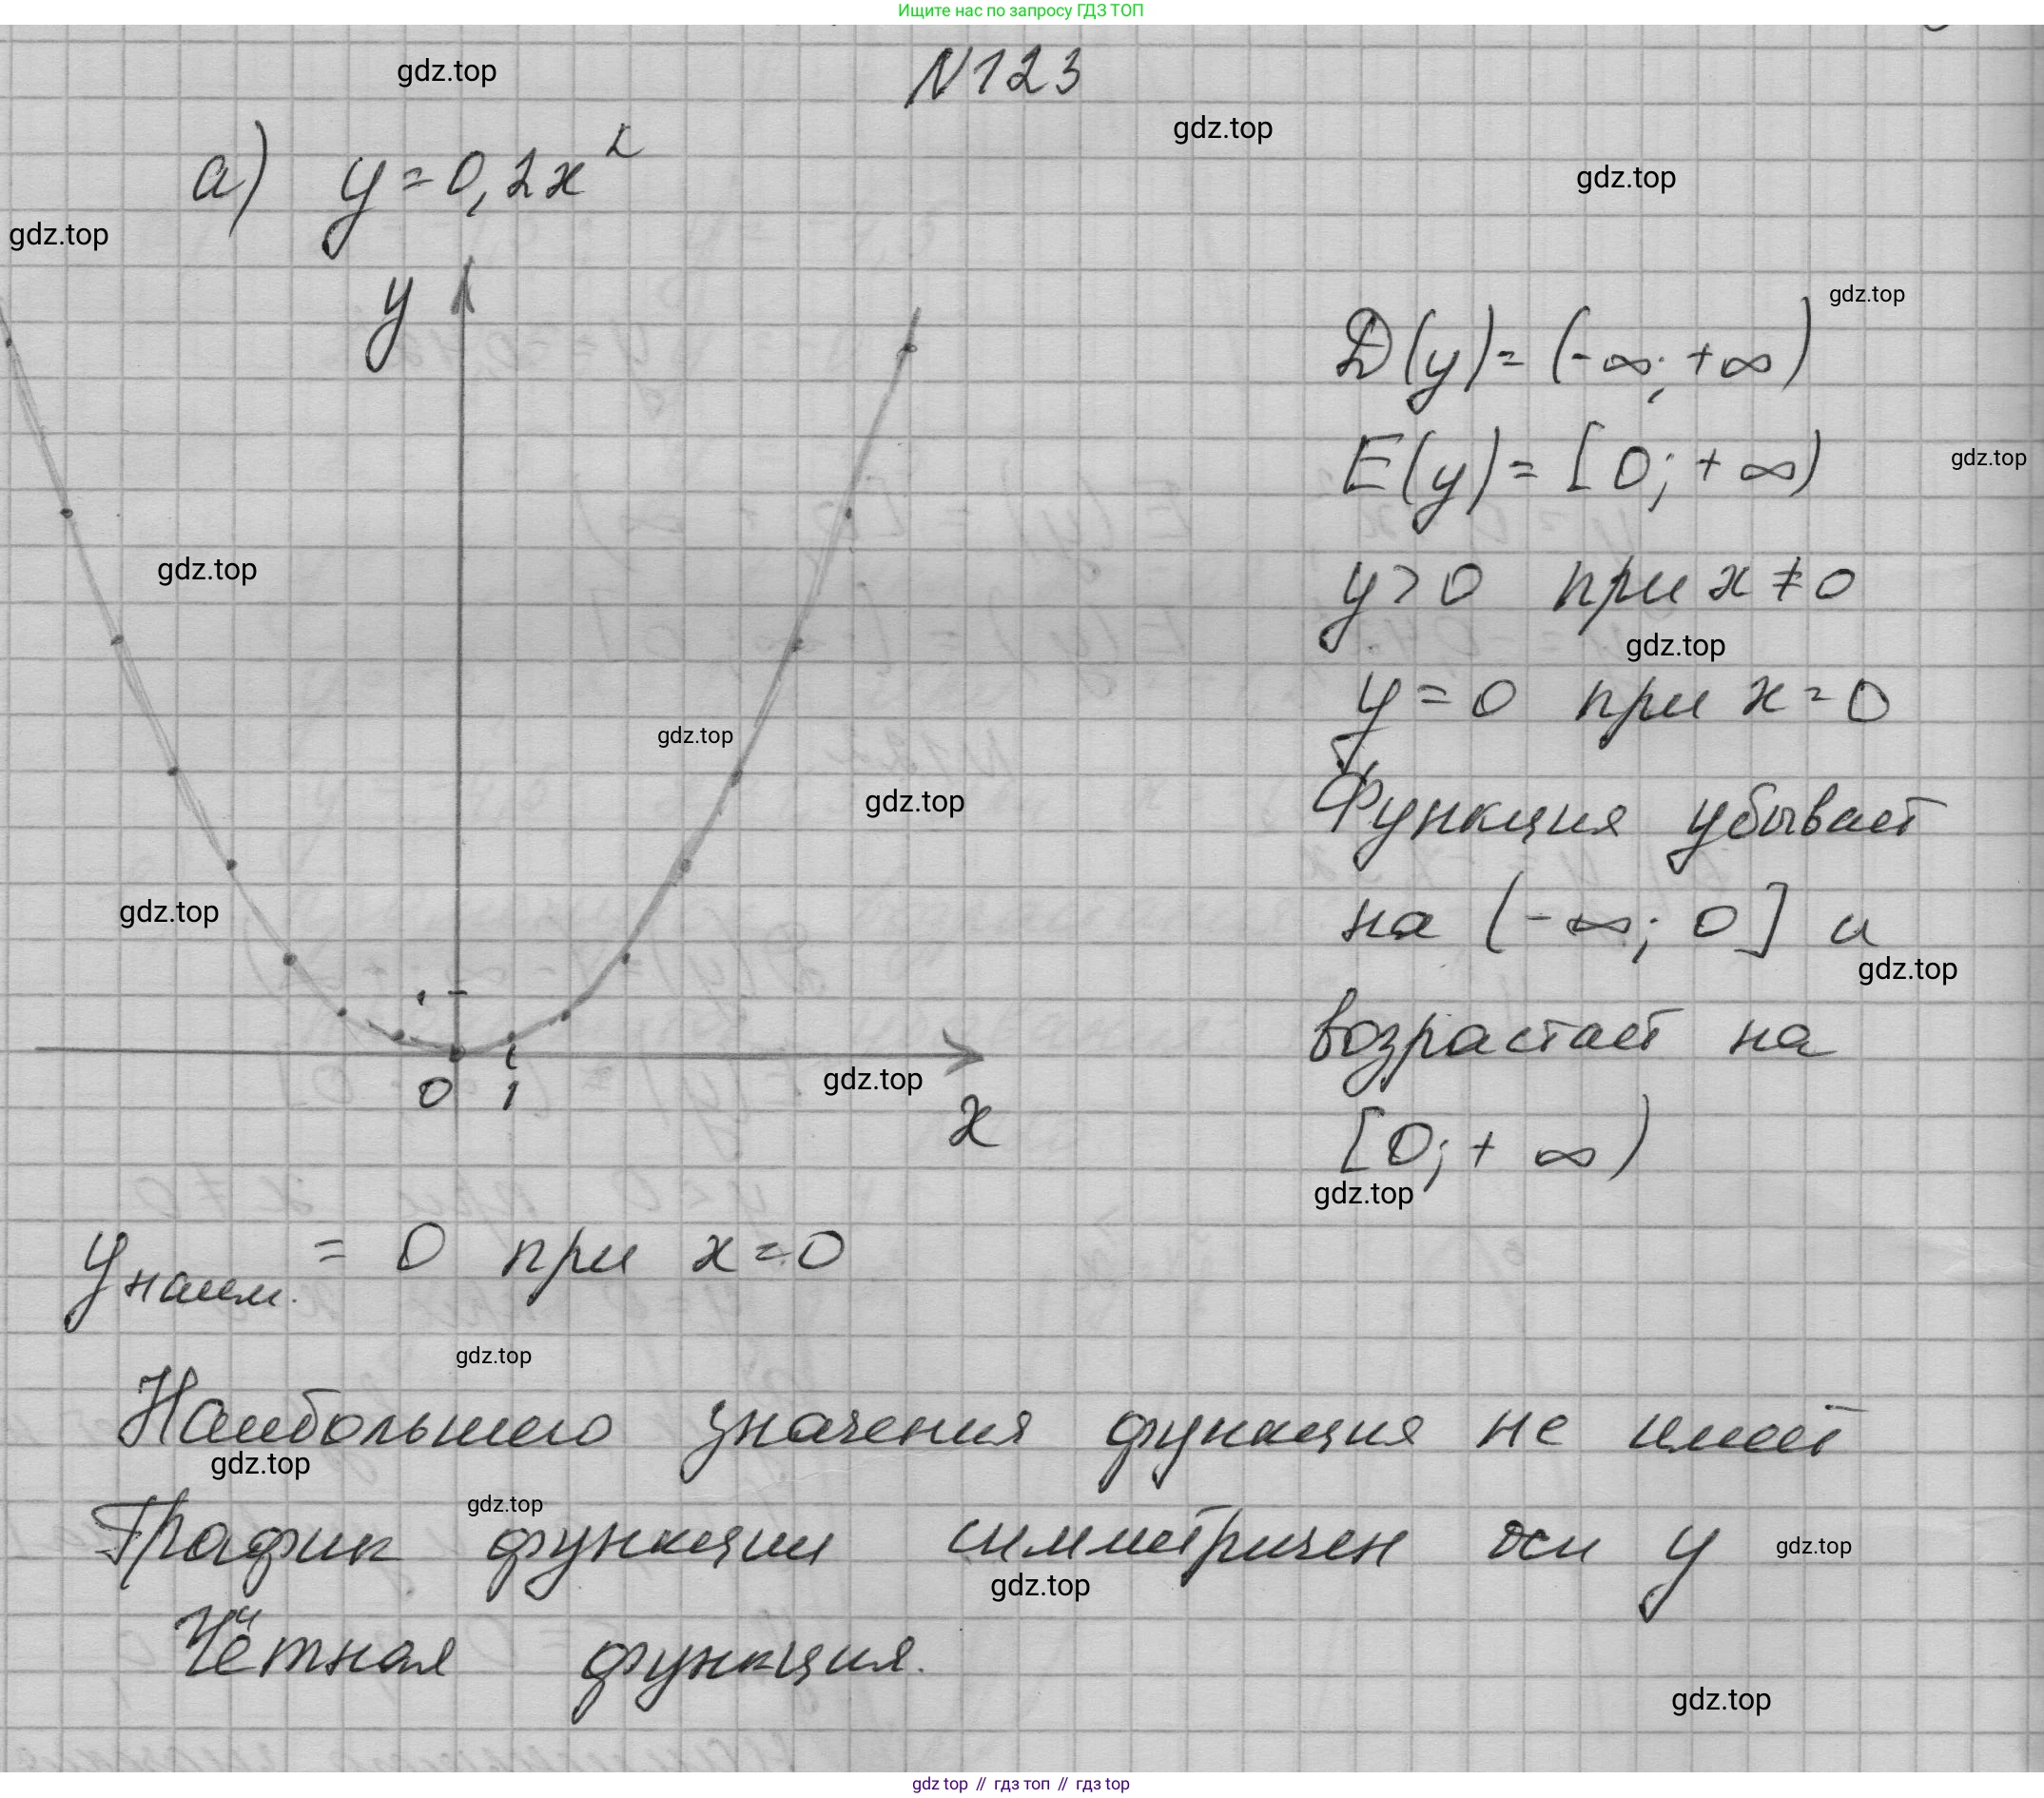 Ищите нас по запросу ГДЗ ТОП
N123
gdz.top
gdz.top
а) y = 0,2x²
gdz.top
gdz.top
y
gdz.top
D(y) = (-∞; +∞)
E(y) = [0; +∞)
gdz.top
gdz.top
y > 0 при x ≠ 0
gdz.top
y = 0 при x = 0
gdz.top
gdz.top
Функция убывает
на (-∞; 0] и
gdz.top
gdz.top
возрастает на
gdz.top
0 1
x
[0; +∞)
gdz.top
y наим. = 0 при x = 0
gdz.top
Наибольшего значения функция не имеет
gdz.top
gdz.top
График функции симметричен оси y
gdz.top
gdz.top
Чётная функция.
gdz.top
gdz top // гдз топ // гдз top